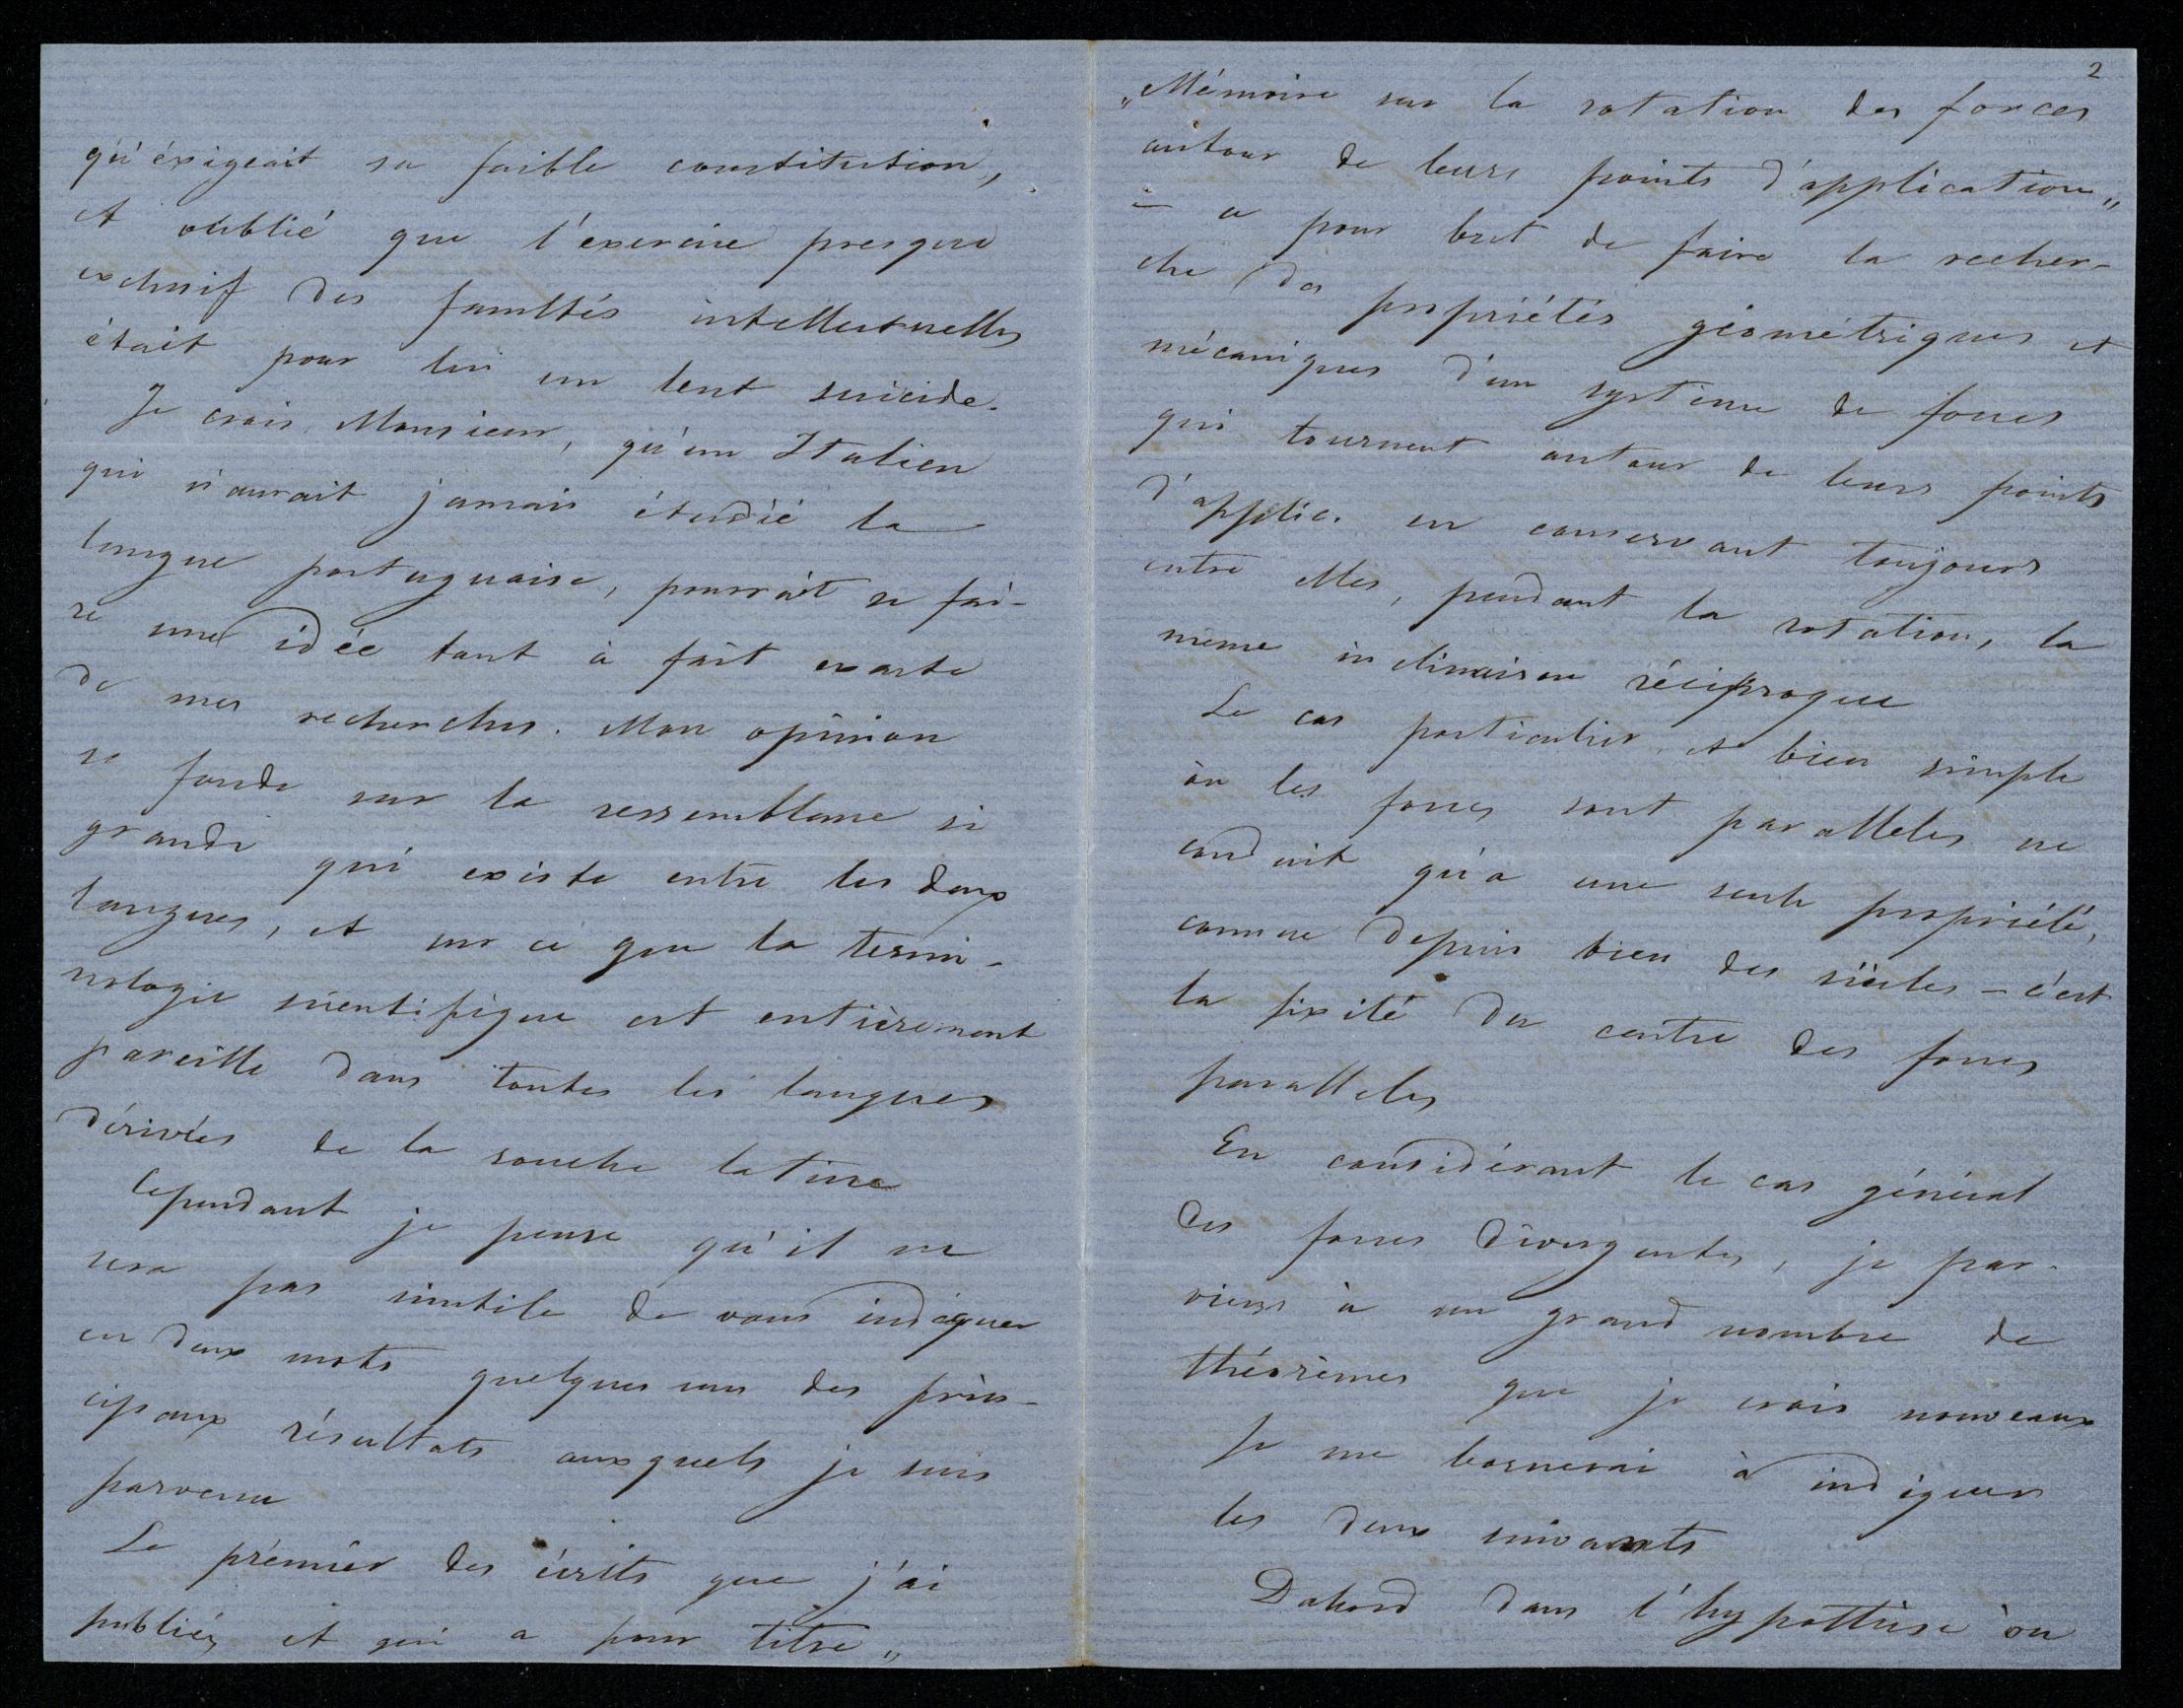 qu'éxigeait sa faible constitution,
et oublié que l'exercice presque
exclusif des facultés intellectuelles
était pour lui un lent suicide.
Je crois, Monsieur, qu'un Italien
qui n'aurait jamais étudié la
langue portuguaise, pourrait se fai-
re une idée tout à fait exacte
de mes recherches. Mon opinion
se fonde sur la ressemblance si
grande qui existe entre les deux
langues, et sur ce que la termi-
nologie scientifique est entièrement
pareille dans toutes les langues
dérivées de la souche latine
Cependant je pense qu'il ne
sera pas inutile de vous indiquer
en deux mots quelques uns des prin-
cipaux résultats auxquels je suis
parvenu
Le prémier des écrits que j'ai
publiés, et qui a pour titre „
2
„Mémoire sur la rotation des forces
autour de leurs points d'application„
— a pour but de faire la recher-
che des propriétés géométriques et
mécaniques d'un système de forces
qui tournent autour de leurs points
d'applic. en conservant toujours
entre elles, pendant la rotation, la
même inclinaison réciproque
Le cas particulier et bien simple
òu les forces sont paralleles ne
conduit qu'a une seule propriété,
connue depuis bien des siècles — c'est
la fixité du centre des forces
paralleles
En considérant le cas général
des forces divergentes, je par-
viens à un grand nombre de
théorèmes que je crois nouveaux
Je me bornerai à indiquer
les deux suivants
Dabord dans l'hypottèse òu